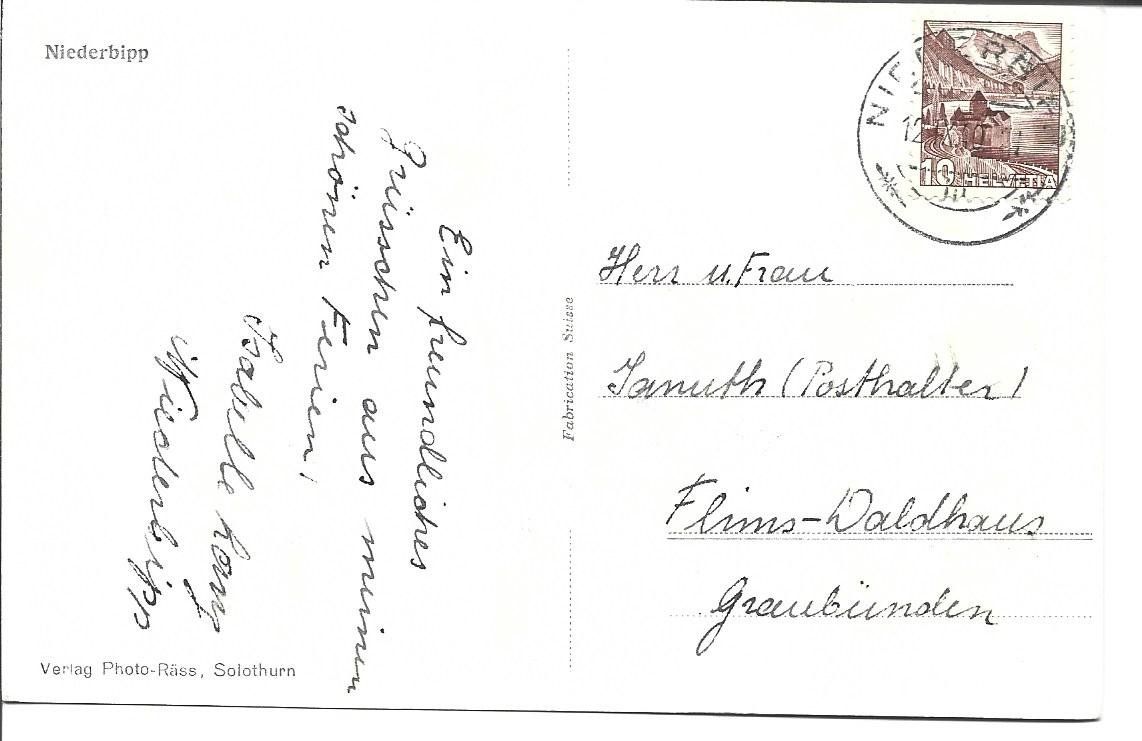 Niederbipp
Ein freundliches
Grüsschen aus meinen
schönen Ferien!
Isabelle
Niederbipp
Verlag Photo-Räss, Solothurn
Fabrication Suisse
10 HELVETIA
Herr u. Frau
Januth (Posthalter)
Flims-Waldhaus
Graubünden